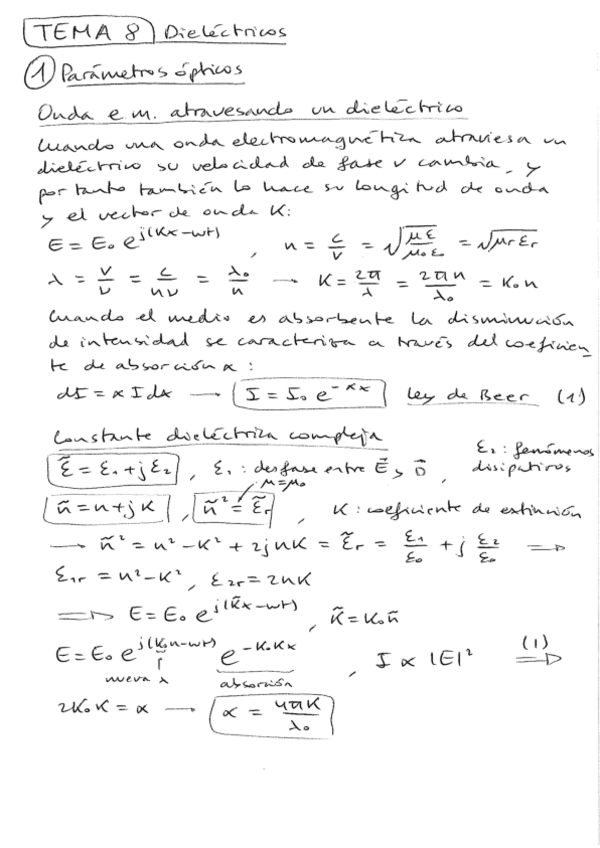 TEMA 8 Dieléctricos
1 Parámetros ópticos
Onda e m. atravesando un dieléctrico
Cuando una onda electromagnética atraviesa un
dieléctrico su velocidad de fase v cambia, y
por tanto también lo hace su longitud de onda
y el vector de onda K:
E = E₀ e^{j(Kx-ωt)} , n = c/v = √(με/μ₀ε₀) = √μrεr
λ = v/ν = c/nν = λ₀/n → K = 2π/λ = 2πn/λ₀ = K₀n
Cuando el medio es absorbente la disminución
de intensidad se caracteriza a través del coeficien
te de absorción α:
dI = α I dx → I = I₀ e^{-αx} Ley de Beer (1)
Constante dieléctrica compleja
ε̃ = ε₁ + j ε₂ , ε₁ : desfase entre E⃗ y D⃗ , ε₂ : fenómenos
disipativos
μ=μ₀
ñ = n + j K , ñ² = ε̃r , K : coeficiente de extinción
→ ñ² = n² - K² + 2jnK = ε̃r = ε₁/ε₀ + j ε₂/ε₀ ⇒
ε₁r = n² - K² , ε₂r = 2nK
⇒ E = E₀ e^{j(K̃x-ωt)} , K̃ = K₀ñ
E = E₀ e^{j(K₀n-ωt)} e^{-K₀Kx} , I ∝ |E|² (1) ⇒
nueva λ absorción
2K₀K = α → α = 4πK/λ₀